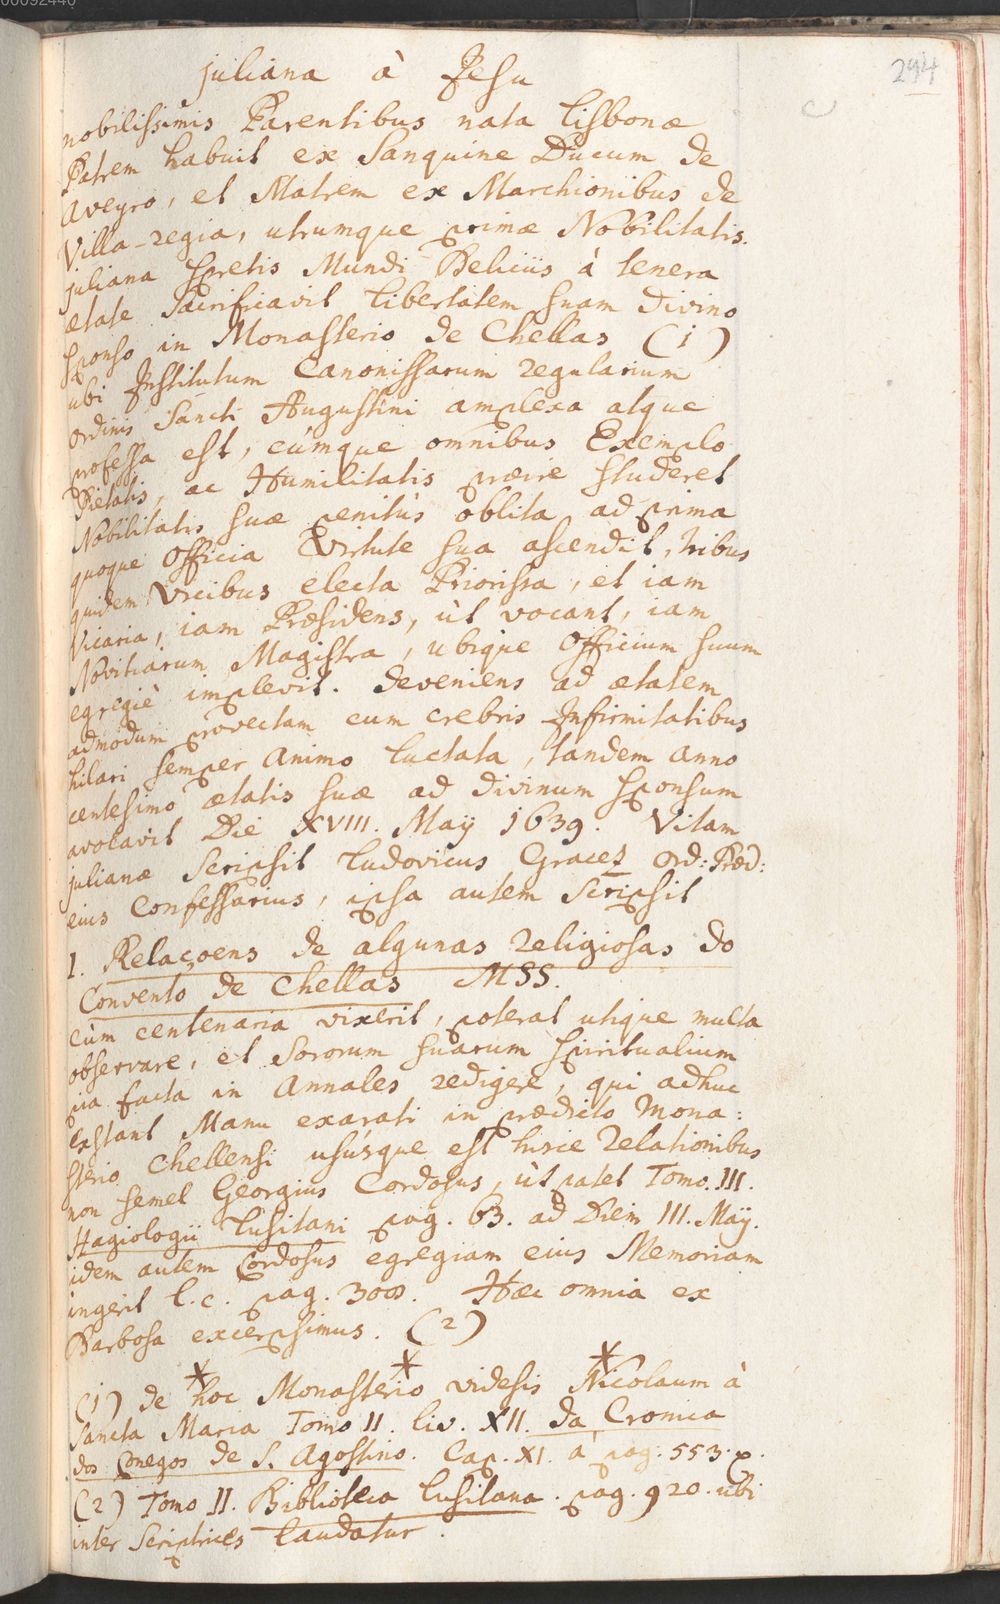 00092440
294
juliana à Jesu
nobilissimis Parentibus nata Lisbonæ
Patrem habuit ex Sanguine Ducum de
Aveyro, et Matrem ex Marchionibus de
Villa-regia, utrumque primæ Nobilitatis.
juliana spretis Mundi Deliciis à tenera
ætate Sacrificavit libertatem suam Divino
sponso in Monasterio de Chellas (1)
ubi Institutum Canonissarum regularium
ordinis Sancti Augustini amplexa atque
professa est, cúmque omnibus Exemplo
Pietatis, ac Humilitatis præire studeret
Nobilitatis suæ penitùs oblita ad prima
quoque officia Virtute sua ascendit, tribus
quidem Vicibus electa Priorissa, et iam
Vicaria, iam Præsidens, ùt vocant, iam
Novitiarum Magistra, ubique officium suum
egregiè implevit. deveniens ad ætatem
admodum provectam cum crebris Infirmitatibus
hilari semper animo luctata, tandem anno
centesimo ætatis suæ ad divinum sponsum
avolavit Die XVIII. Maÿ 1639. Vitam
julianæ Scripsit Ludovicus Graces ord: Præd:
eius Confessarius, ipsa autem Scripsit
1. Relaçoens de algunas religiosas do
Convento de Chellas MSS.
cùm centenaria vixerit, poterat utique multa
observare, et Sororum suarum spiritualium
pia facta in Annales redigere, qui adhuc
exstant Manu exarati in prædicto Mona:
sterio Chellensi usúsque est hisce relationibus
non semel Georgius Cordosus, ùt patet Tomo. III.
Hagiologii Lusitani pag. 63. ad Diem III. Maÿ.
idem autem Cordosus egregiam eius Memoriam
ingerit l.c. pag. 300. Hæc omnia ex
Barbosa excerpsimus. (2)
(1) de hoc Monasterio videsis Nicolaum à
Sancta Maria Tomo II. liv. XII. da Cronica
dos Conegos de S. Agostino. Cap. XI. à pag. 553.
(2) Tomo II. Biblioteca Lusitana. pag. 920. ubi
inter Scriptrices laudatur.